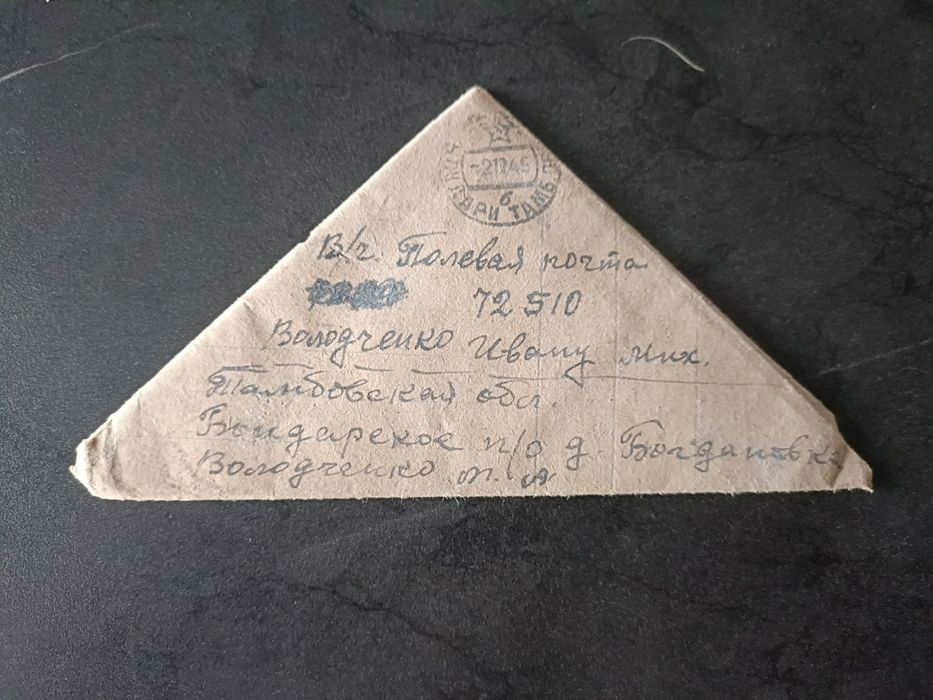 -21245
б
ДАРИ ТАМБ
В/ч. Полевая почта
72510
Володченко Ивану Мих.
Тамбовская обл.
Бондарское п/о д. Богдановка
Володченко